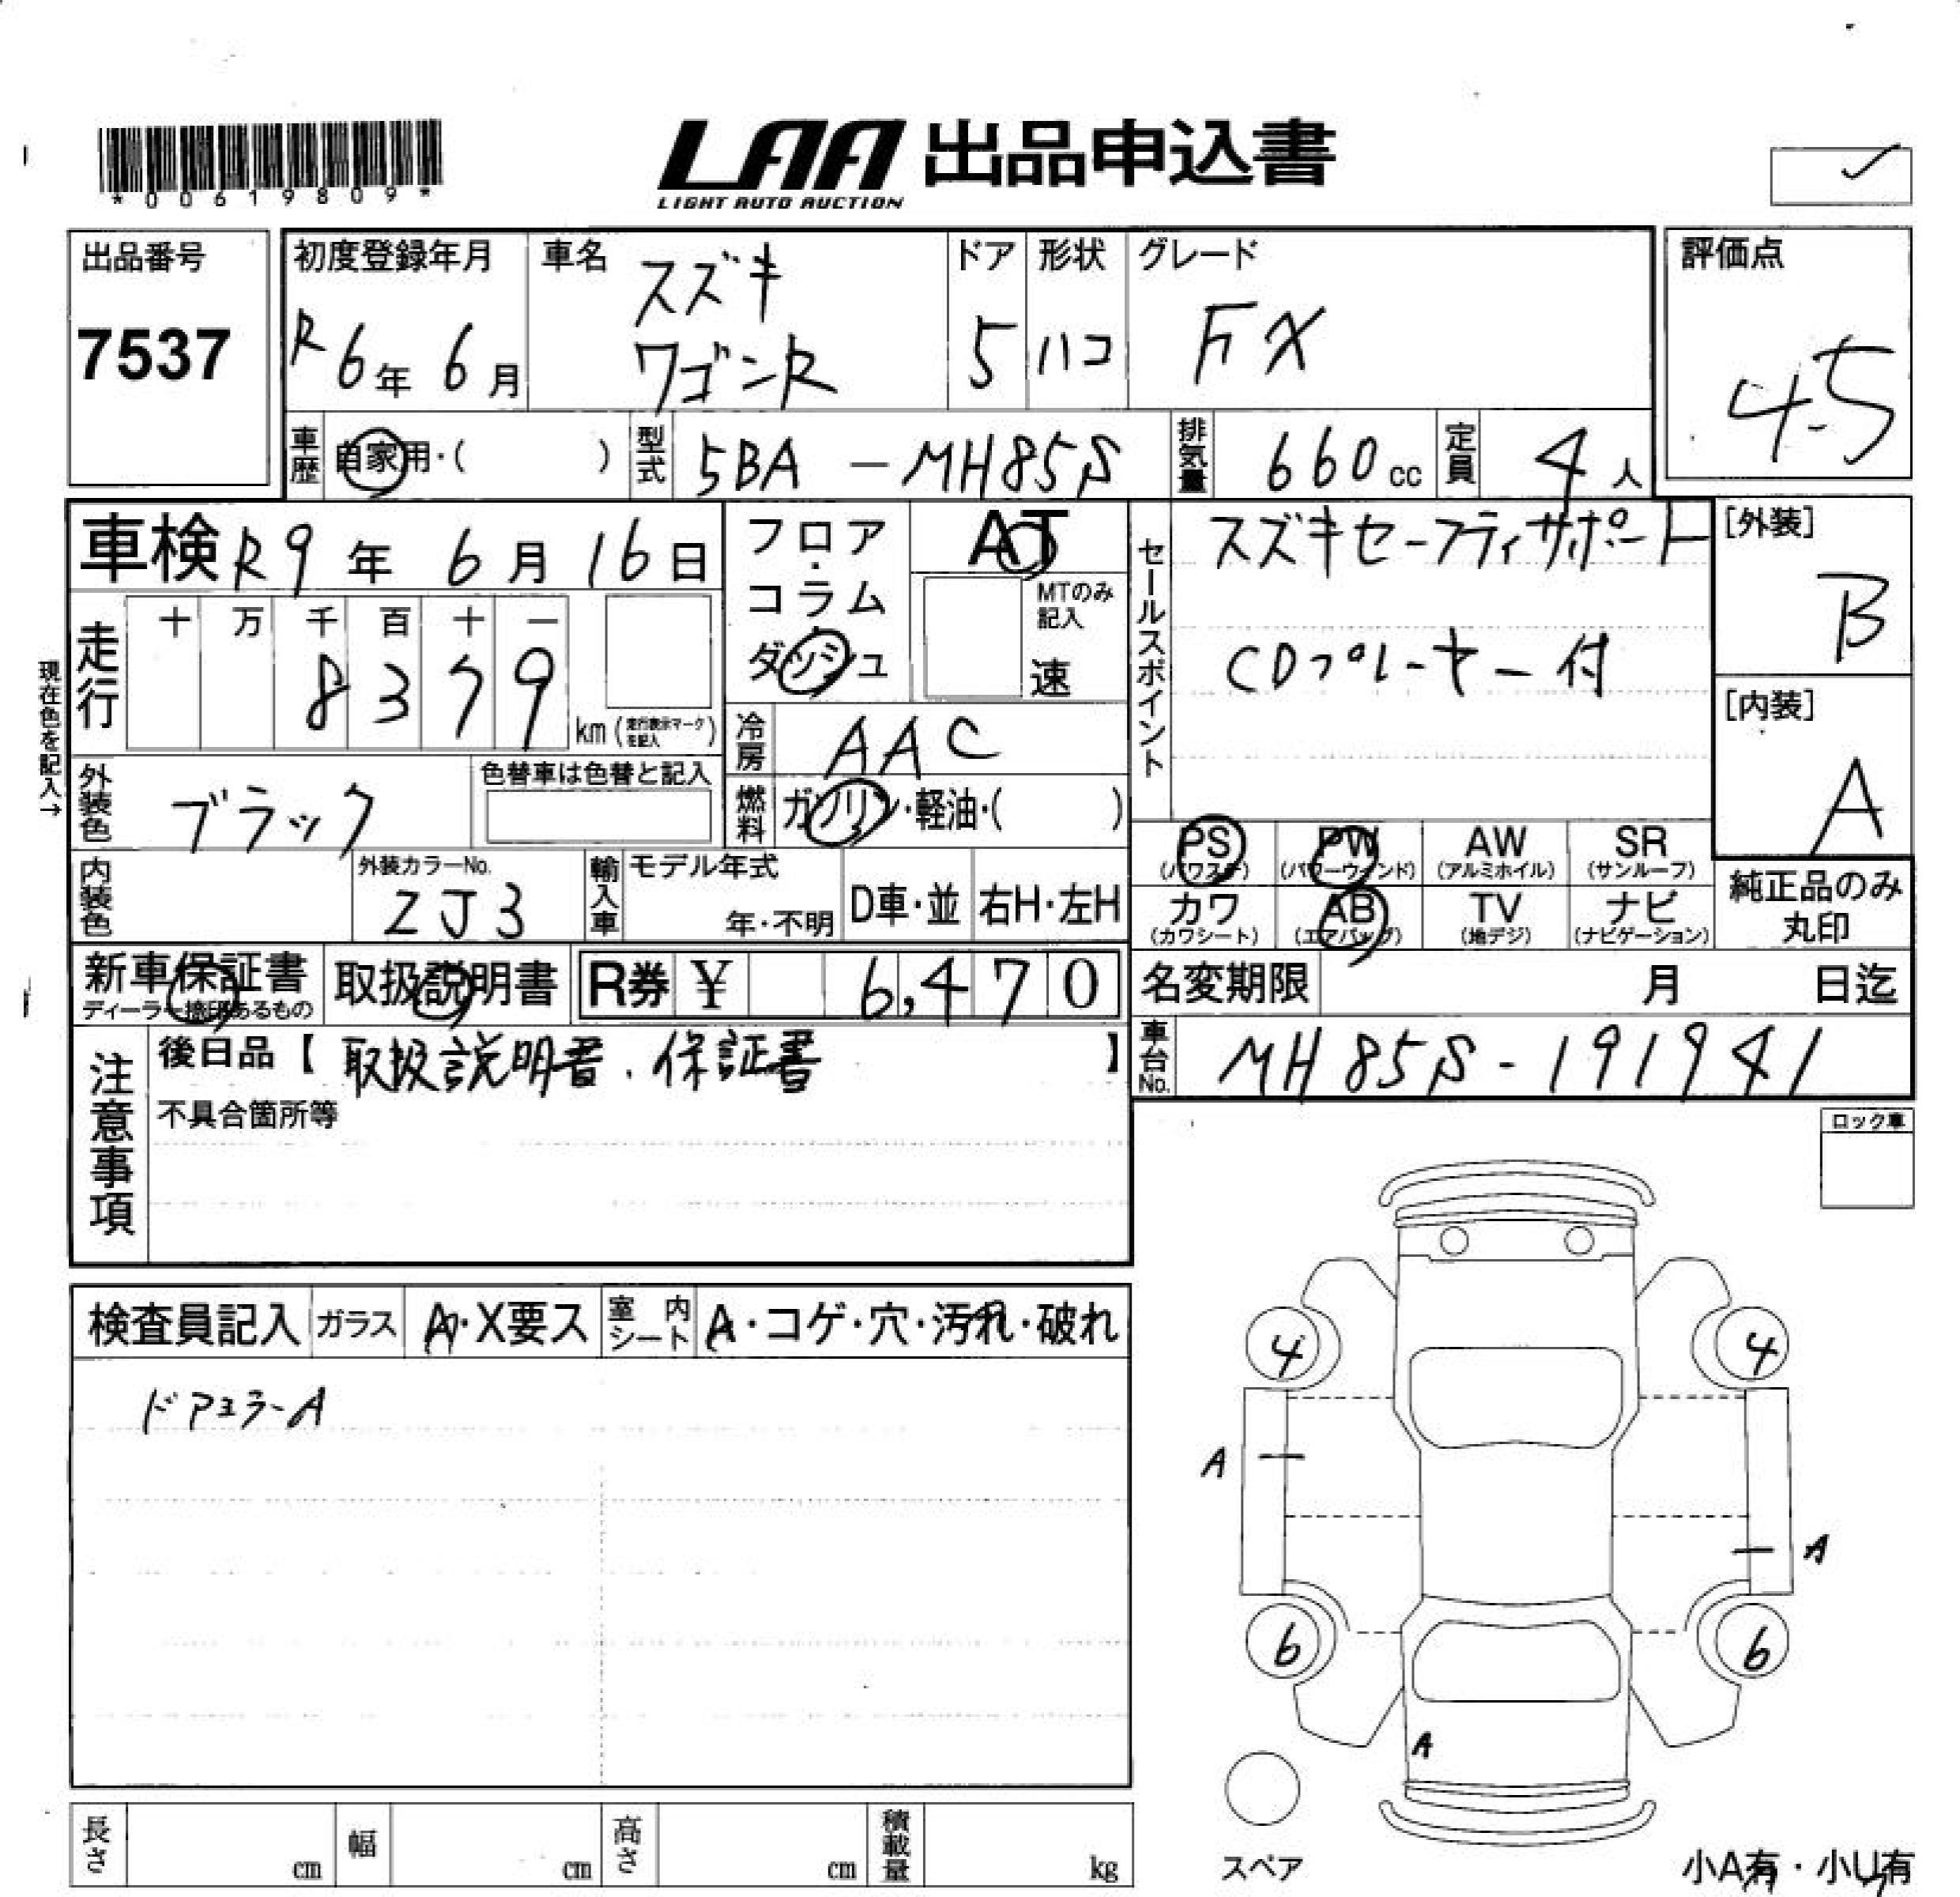 *00619809*
LAA 出品申込書
LIGHT AUTO AUCTION
出品番号
7537
初度登録年月
R6年 6月
車名
スズキ
ワゴンR
ドア
5
形状
ハコ
グレード
FX
評価点
4.5
車歴 自家用・( )
型式 5BA - MH85S
排気量 660cc
定員 4人
車検 R9年 6月 16日
走行
十 万 千 百 十 一
8 3 7 9
km (走行表示マークを記入)
現在色を記入→
フロア・コラム・ダッシュ
AT
MTのみ記入
速
冷房 AAC
燃料 ガソリン・軽油・( )
セールスポイント
スズキセーフティサポート
CDプレーヤー付
[外装]
B
[内装]
A
外装色 ブラック
色替車は色替と記入
内装色
外装カラーNo.
ZJ3
輸入車 モデル年式
年・不明
D車・並
右H・左H
PS (パワステ)
PW (パワーウィンド)
AW (アルミホイル)
SR (サンルーフ)
カワ (カワシート)
AB (エアバッグ)
TV (地デジ)
ナビ (ナビゲーション)
純正品のみ丸印
新車保証書
ディーラー捺印あるもの
取扱説明書
R券 ¥ 6,470
名変期限 月 日迄
車台No. MH85S-191941
注意事項
後日品【 取扱説明書、保証書 】
不具合箇所等
ロック車
検査員記入
ガラス A・X要ス
室内シート A・コゲ・穴・汚れ・破れ
ドアミラーA
4 4
A
A
6 6
A
スペア
小A有・小U有
長さ cm
幅 cm
高さ cm
積載量 kg